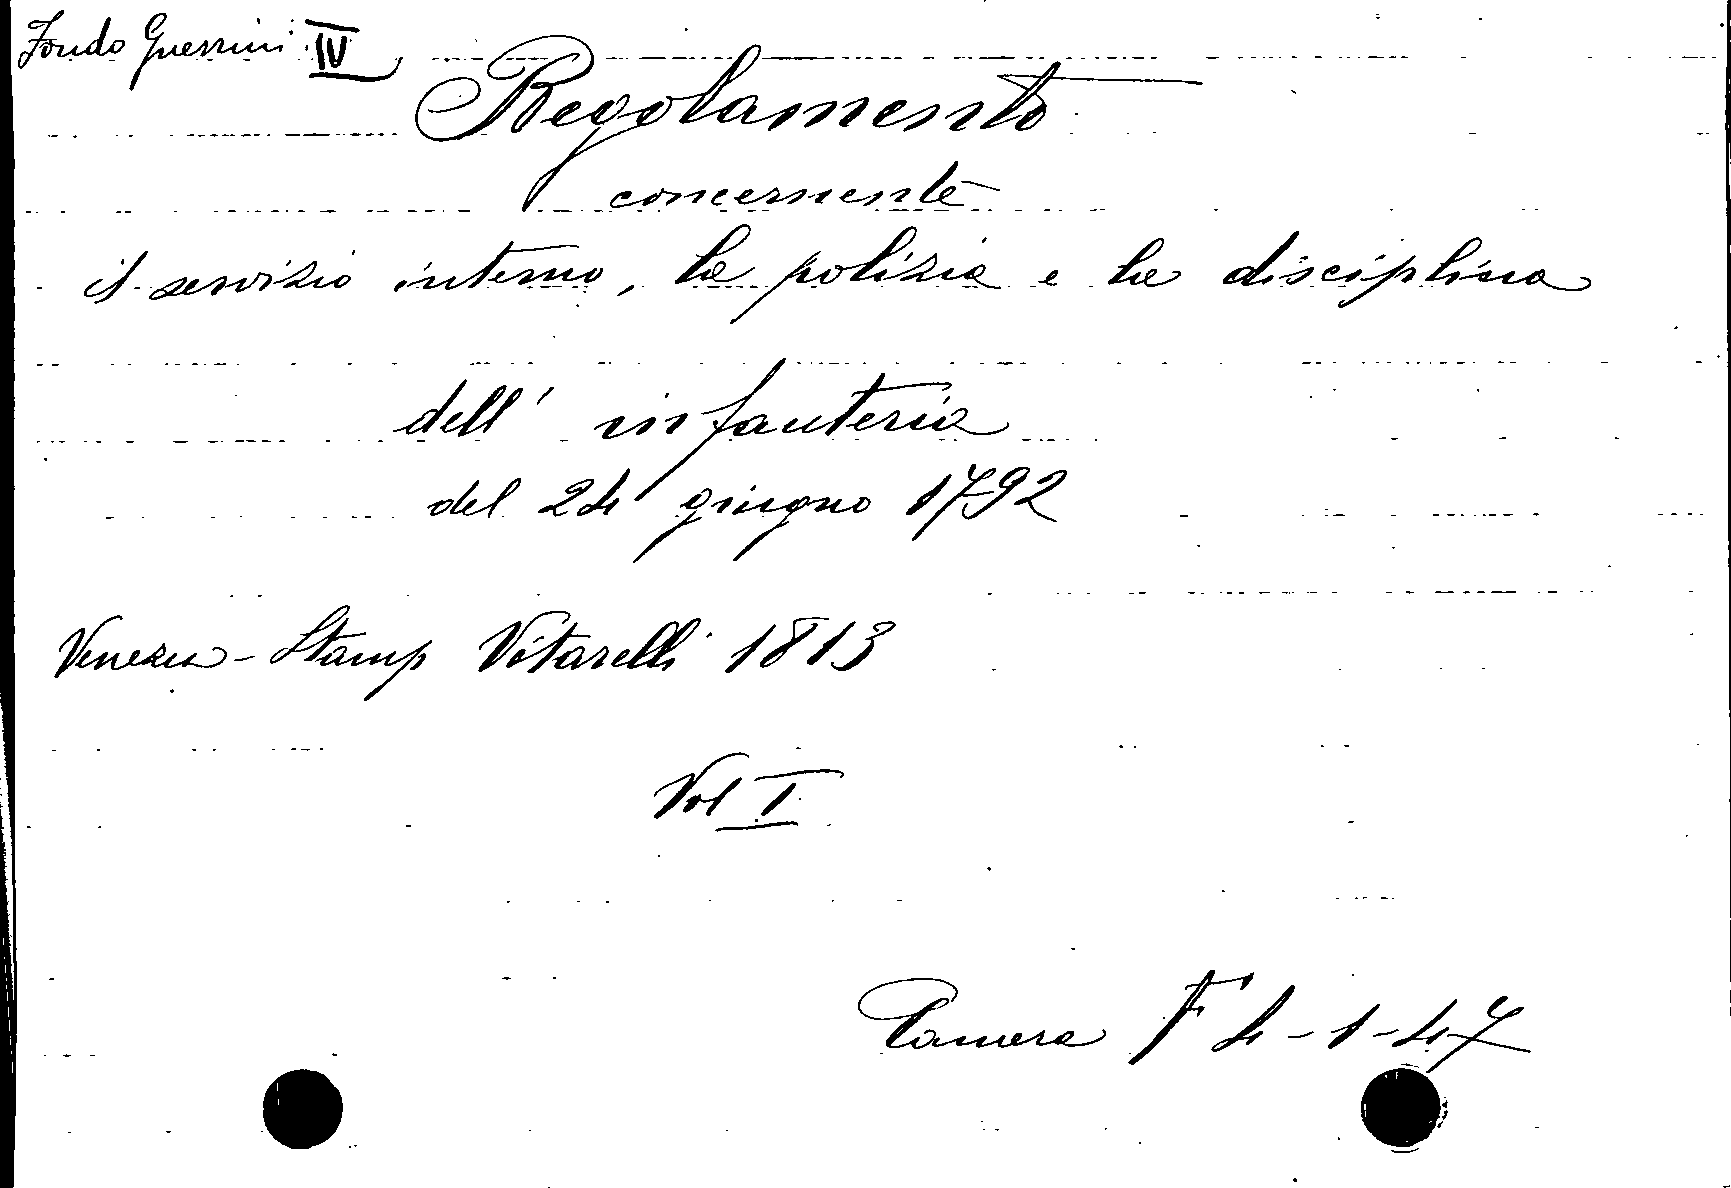 Fondo Guerrini IV
Regolamento
concernente
il servizio interno, la polizia e la disciplina
dell' infanteria
del 24 giugno 1792
Venezia - Stamp Vitarelli 1813
Vol I
Camera F 4-1-47